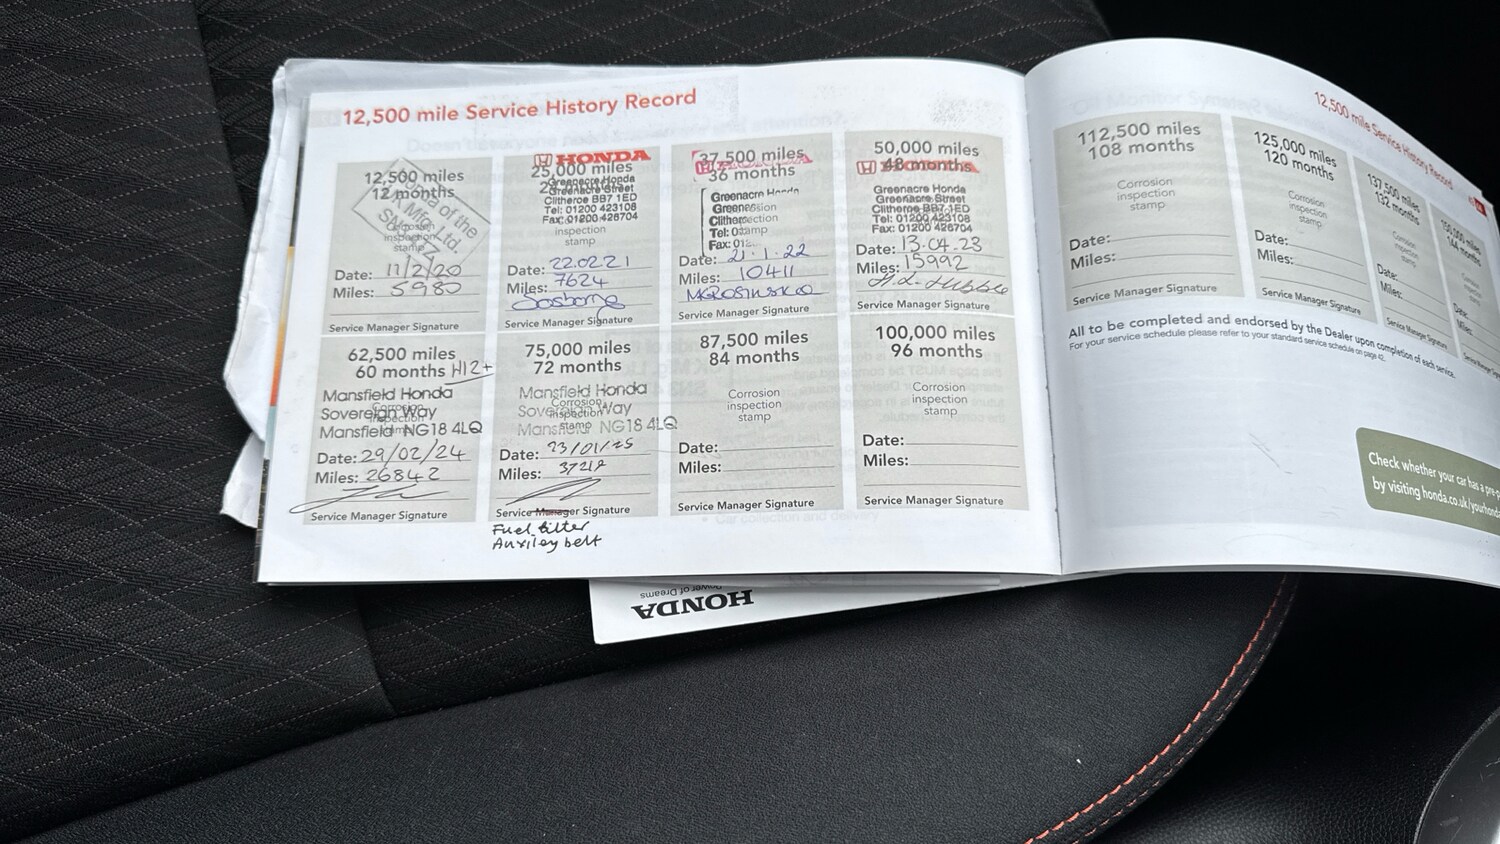 12,500 mile Service History Record
12,500 miles
12 months
Honda of the
Mfg Ltd.
Corrosion
inspection
stamp
Date: 11/2/20
Miles: 5980
Service Manager Signature
HONDA
25,000 miles
Greenacre Honda
Greenacre Street
Clitheroe BB7 1ED
Tel: 01200 423108
Fax: 01200 426704
inspection
stamp
Date: 22.02.21
Miles: 7624
Service Manager Signature
37,500 miles
36 months
Greenacre Honda
Tel:
Fax:
stamp
Date: 21.1.22
Miles: 10411
Service Manager Signature
50,000 miles
48 months
Greenacre Honda
Greenacre Street
Clitheroe BB7 1ED
Tel: 01200 423108
Fax: 01200 426704
Date: 13.04.23
Miles: 15992
Service Manager Signature
62,500 miles
60 months H12+
Mansfield Honda
Sovereign Way
Mansfield NG18 4LQ
Date: 29/02/24
Miles: 26842
Service Manager Signature
75,000 miles
72 months
Mansfield Honda
Sovereign Way
Mansfield NG18 4LQ
Date: 23/01/25
Miles:
Service Manager Signature
Fuel filter
Auxiley belt
87,500 miles
84 months
Corrosion
inspection
stamp
Date:
Miles:
Service Manager Signature
100,000 miles
96 months
Corrosion
inspection
stamp
Date:
Miles:
Service Manager Signature
HONDA
Power of Dreams
12,500 mile Service History Record
112,500 miles
108 months
Corrosion
inspection
stamp
Date:
Miles:
Service Manager Signature
125,000 miles
120 months
Corrosion
inspection
stamp
Date:
Miles:
Service Manager Signature
137,500 miles
132 months
Corrosion
inspection
stamp
Date:
Miles:
Service Manager Signature
150,000 miles
144 months
Date:
Miles:
All to be completed and endorsed by the Dealer upon completion of each service.
For your service schedule please refer to your standard service schedule on page 42.
Check whether your car has a
by visiting honda.co.uk/yourhonda